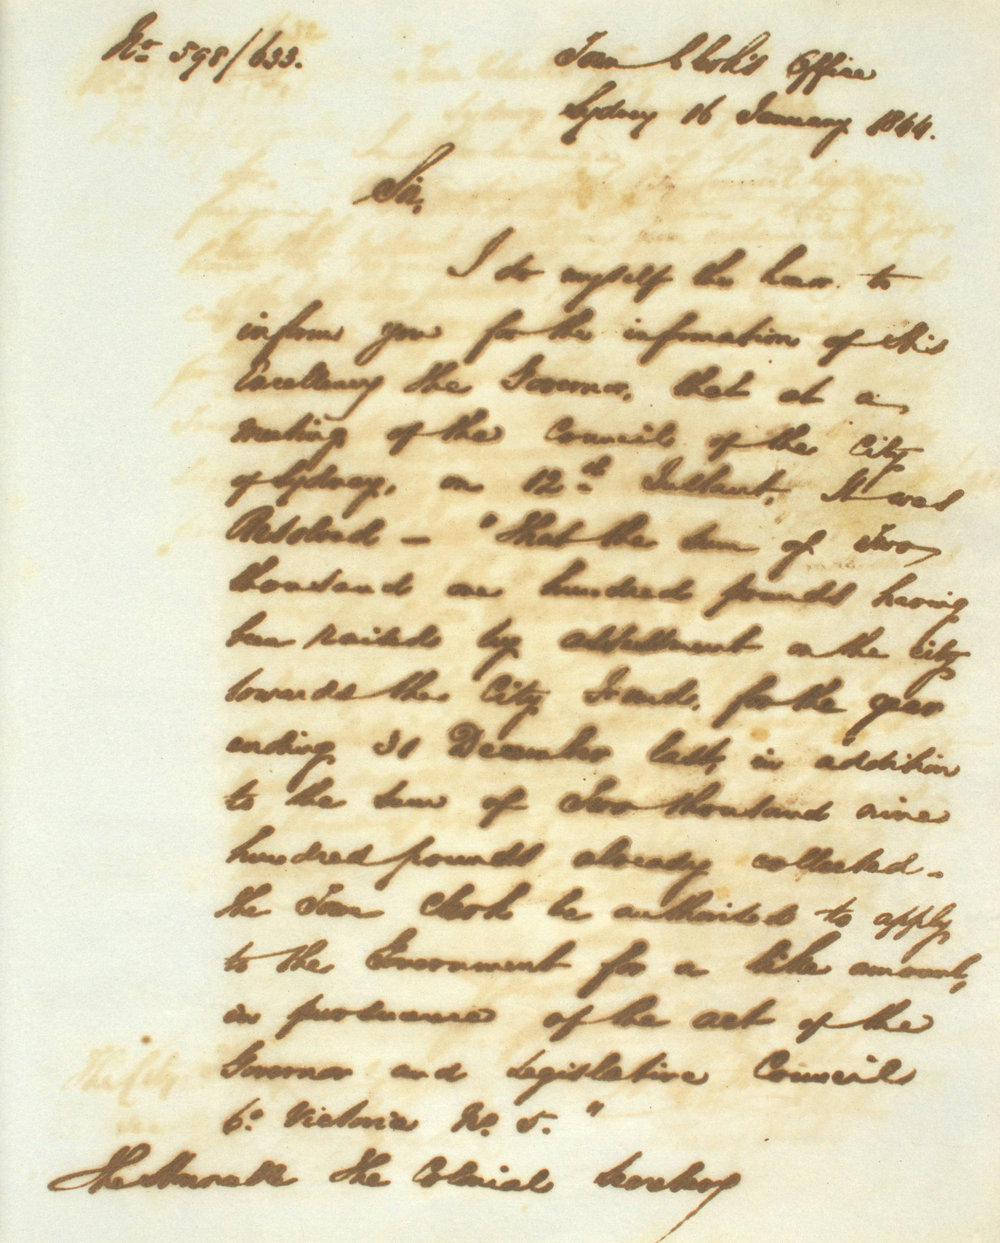 No. 598/633.
Town Clerk's Office
Sydney 16 January 1844.
Sir,
I do myself the honor to
inform you for the information of His
Excellency the Governor, that at a
meeting of the Council of the City
of Sydney, on 12th Instant, It was
Resolved – "That the sum of Two
thousand one hundred pounds having
been raised by assessment on the City
towards the City Funds, for the year
ending 31 December last, in addition
to the sum of Two thousand nine
hundred pounds already collected –
the Town Clerk be authorised to apply
to the Government for a like amount,
in pursuance of the act of the
Governor and Legislative Council
6o Victoria No. 5."
The Honorable The Colonial Secretary